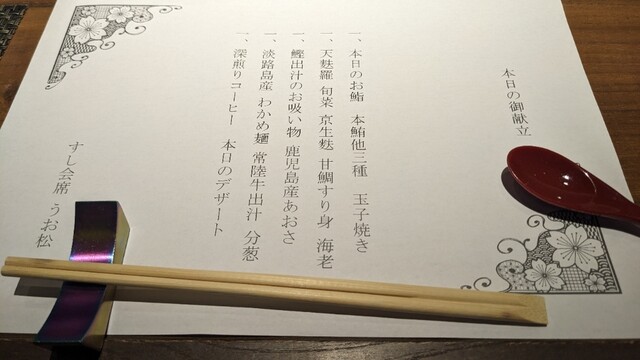 本日の御献立
一、本日のお鮨 本鮪他三種 玉子焼き
一、天麩羅 旬菜 京生麩 甘鯛すり身 海老
一、鰹出汁のお吸い物 鹿児島産あおさ
一、淡路島産 わかめ麺 常陸牛出汁 分葱
一、深煎りコーヒー 本日のデザート
すし会席 うお松